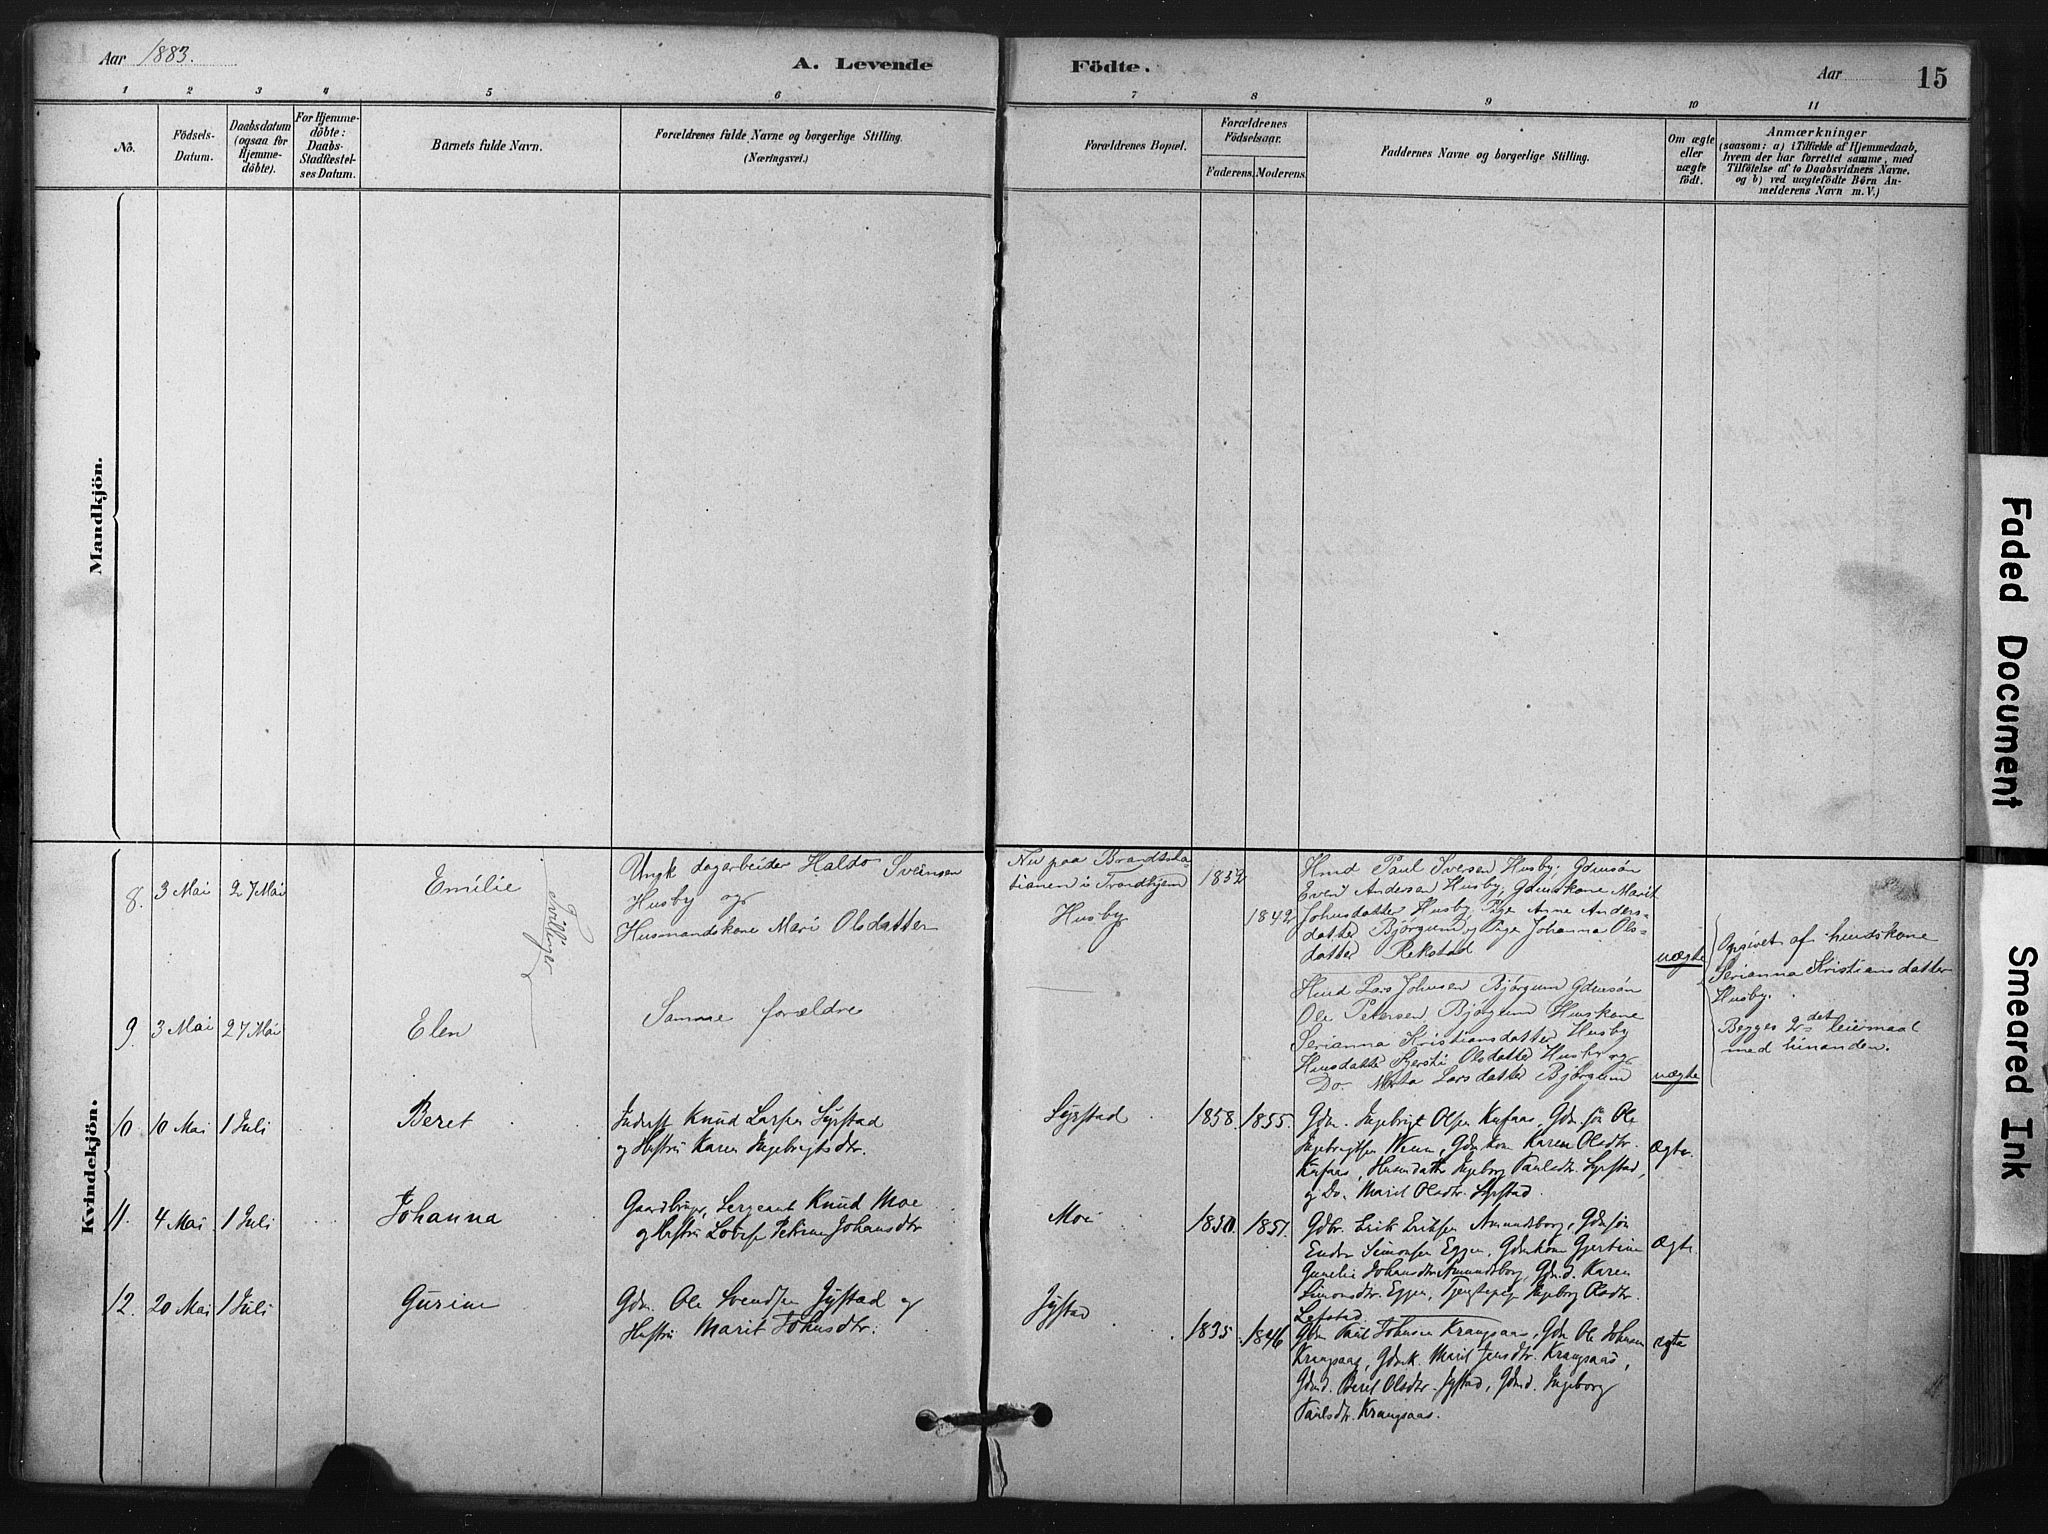 Aar 1883.
A. Levende
Födte.
Aar
15
1
2
3
4
5
6
7
8
9
10
11
No.
Födsels-
Datum.
Daabsdatum
(ogsaa for
Hjemme-
döbte).
For Hjemme-
döbte:
Daabs-
Stadfæstel-
ses Datum.
Barnets fulde Navn.
Forældrenes fulde Navne og borgerlige Stilling.
(Næringsvei.)
Forældrenes Bopæl.
Forældrenes
Födselsaar.
Faderens.
Moderens.
Faddernes Navne og borgerlige Stilling.
Om ægte
eller
uægte
födt.
Anmærkninger
(saasom: a) i Tilfælde af Hjemmedaab,
hvem der har forrettet samme, med
Tilföielse af to Daabsvidners Navne,
og b) ved uægtefödte Börn An-
melderens Navn m. V.)
Mandkjön.
Kvindekjön.
8.
3 Mai
27 Mai
Emilie
Tvillinger
Ungk dagarbeider Haldo Sveinsen
Husby og
Husmandskone Mari Olsdatter
Nu paa Brandsta-
tionen i Trondhjem
Husby
1852
1842
Hmd Paul Iversen Husby, Gdmsön
Even Andersen Husby, Gdmskone Marit
Johnsdatter Husby, Pige Anne Anders-
datter Bjørgum og Pige Johanna Ols-
datter Rekstad
uægte
Opgivet af husdskone
Serianna Kristiansdatter
Husby.
Begges 2det leiermaal
med hinanden.
9.
3 Mai
27 Mai
Elen
Samme forældre
Hmd Lars Johnsen Bjørgum Gdmsön
Ole Petersen, Bjørgum Huskone
Serianna Kristiansdatter Husby
Husdatter Kjersti Olsdatter Husby og
Do. Marta Larsdatter Bjørgum
uægte
10.
10 Mai
1 Juli
Beret
Inderst Knud Larsen Syrstad
og Hustru Karen Ingebrigtsdtr.
Syrstad
1858.
1855.
Gdm. Ingebrigt Olsen Kufaas, Gdm søn Ole
Ingebrigtsen Wenn, Gdm kone Karen Olsdtr.
Kufaas, Husmdatter Ingeborg Paulsdtr. Syrstad,
og Do. Marit Olsdtr. Syrstad.
Ægte.
11.
4 Mai
1 Juli
Johanna
Gaardbruger, Sergeant Knud Moe
og Hustru Lovise Petrine Johansdtr
Moe
1850.
1851.
Gdbr. Erik Eriksen Amundsborg, Gdmsøn
Endre Simonsen Eggen, Gdmkone Gjertine
Gunelie Johansdtr Amundsborg, Gdmd. Karen
Simonsdtr. Eggen, Tjenestepige Ingeborg Olsdtr.
Lefstad.
Ægte
12.
20 Mai
1 Juli
Gurine
Gdm. Ole Svendsen Jystad og
Hustru Marit Johnsdtr.
Jystad
1835.
1846
Gdm Paul Johnsen Krangsaas, Gdm Ole Johnsen
Krangsaas, Gdmk. Marit Jensdtr. Krangsaas,
Gdmd. Beret Olsdtr. Jystad, Gdmd. Ingeborg
Paulsdtr. Krangsaas.
ægte
Faded Document
Smeared Ink